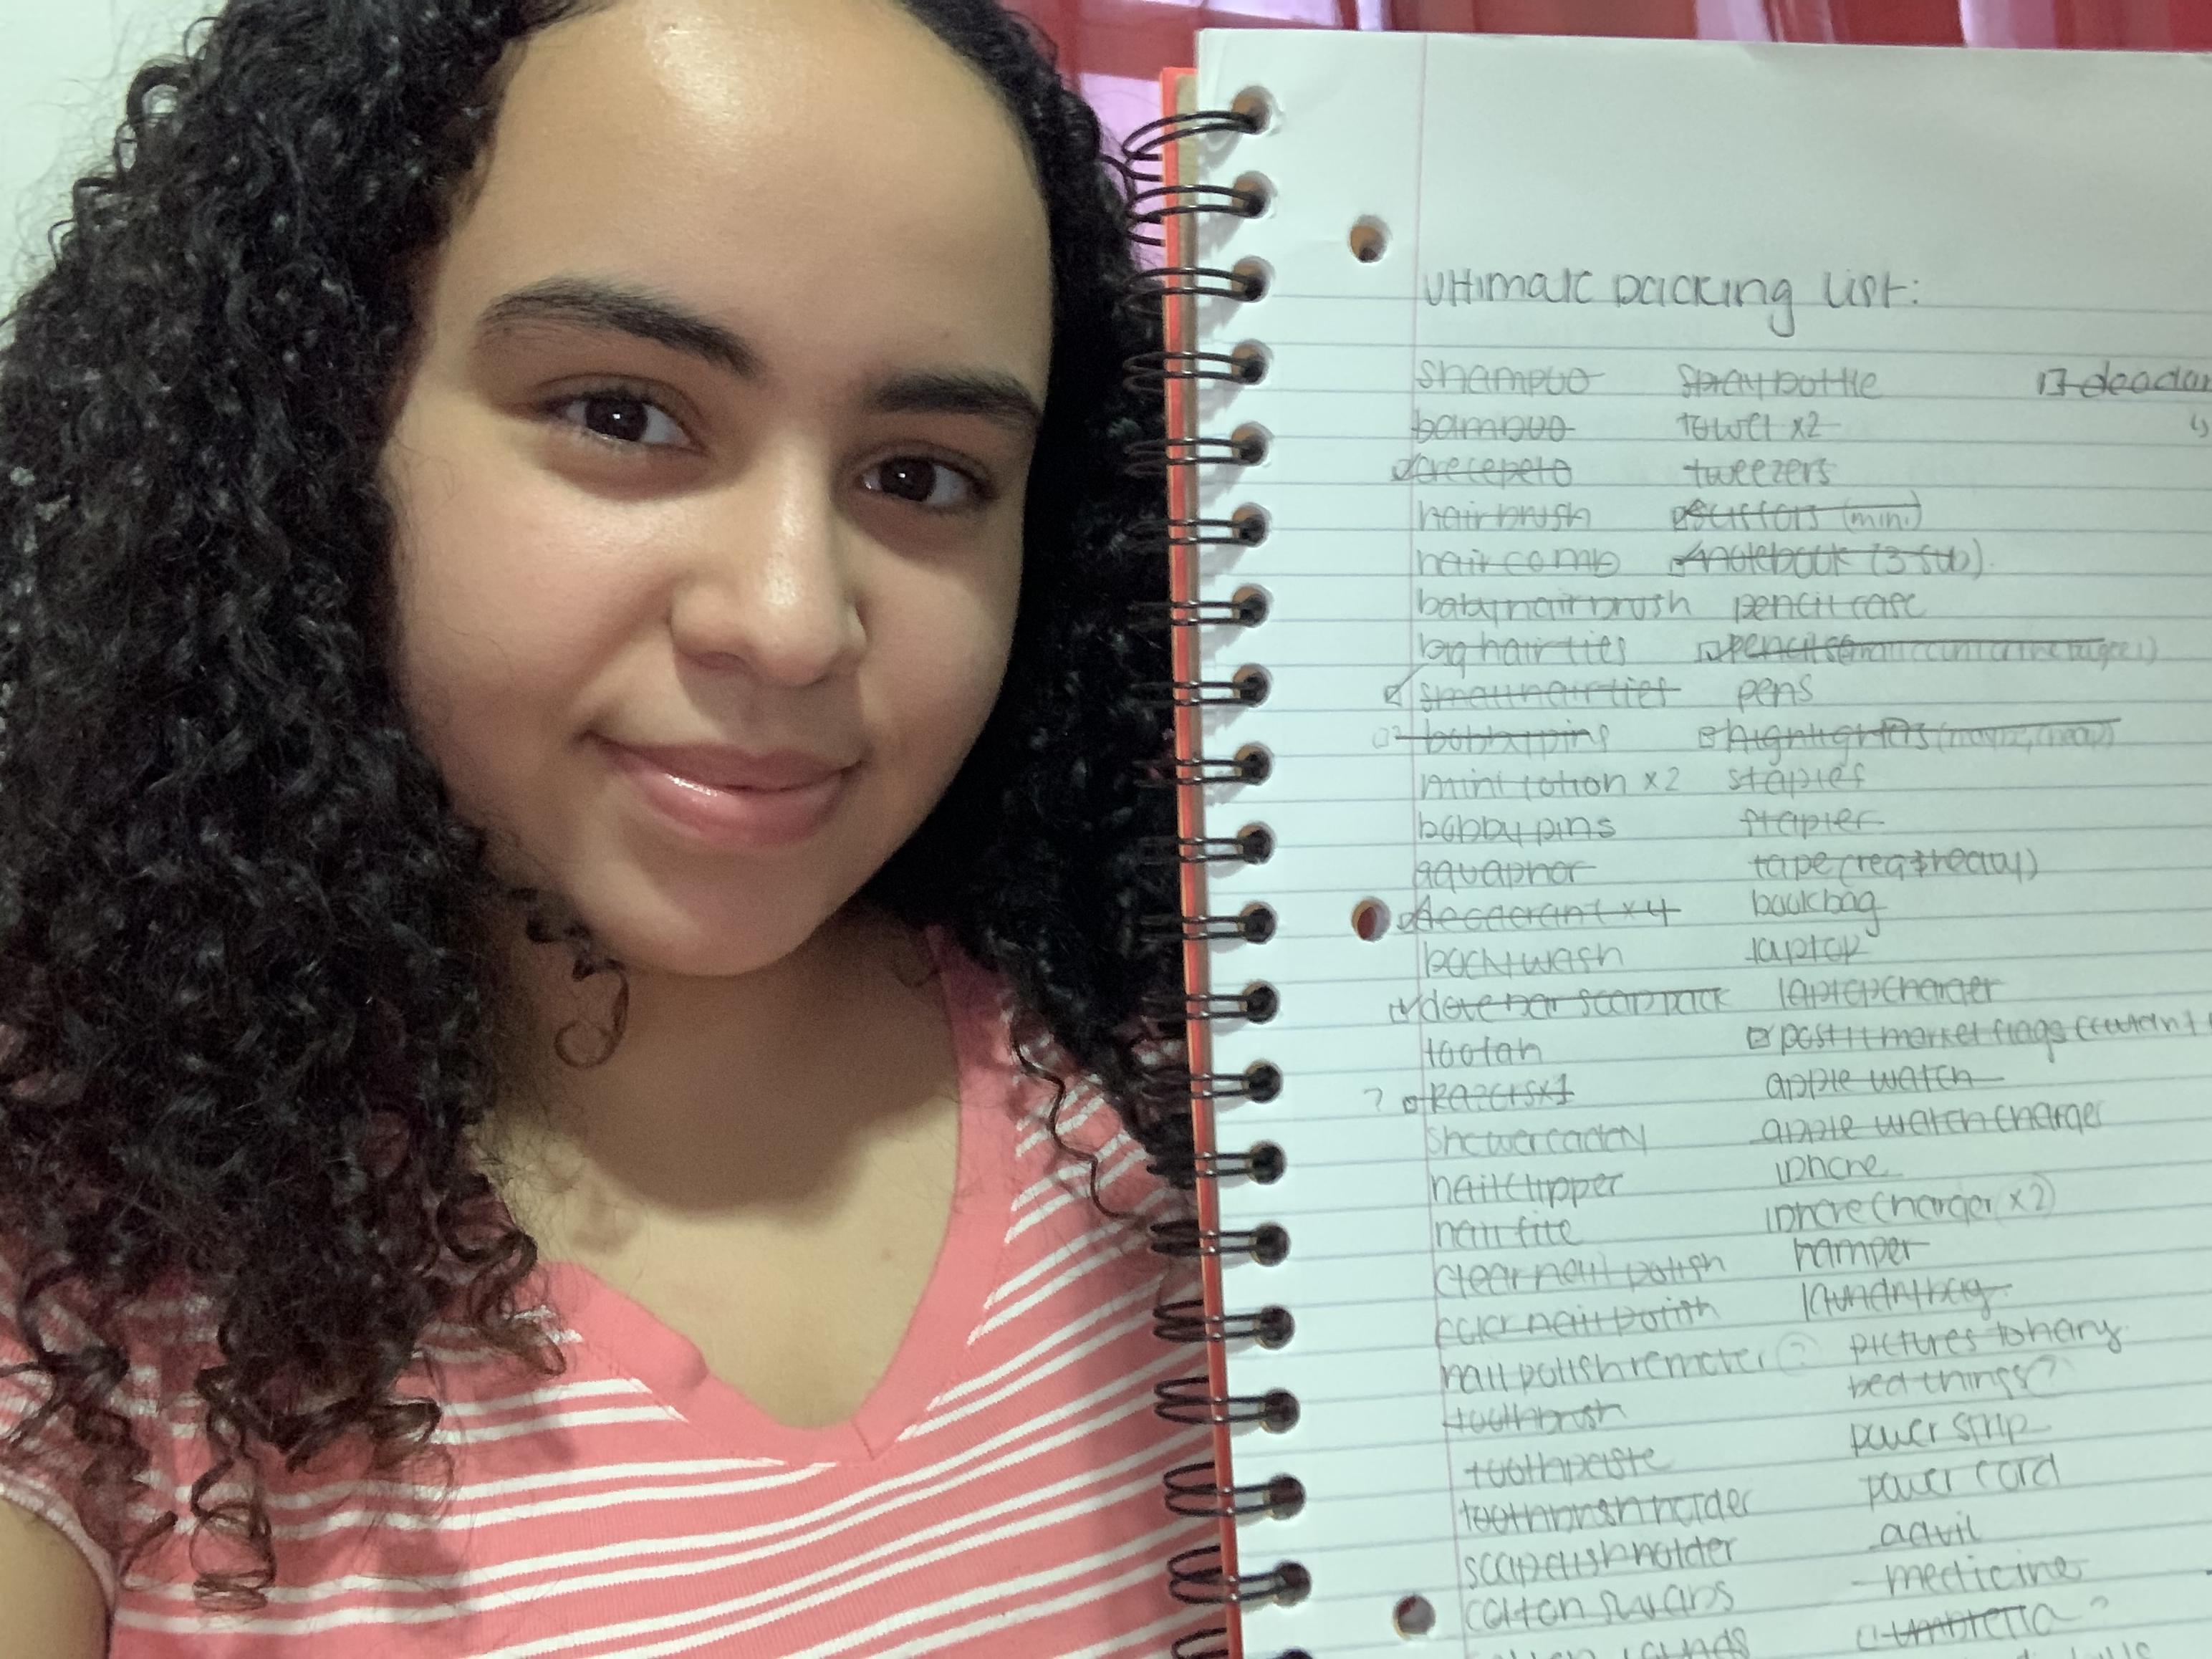 ultimate packing list:
shampoo spray bottle deodor
bamboo towel x2
tweezers
hairbrush scissors (mini)
hair comb notebook (3 sub).
baby hair brush pencil case
big hair ties pencils
small hair ties pens
bobby pins highlighters
mini lotion x2 staples
bobby pins stapler
aquaphor tape (reg &
deoderant x4 bookbag
body wash laptop
dove bar soap pack laptop charger
loofah post it market flags
? razors x1 apple watch
shower caddy apple watch charger
nail clipper iphone
nail file iphone charger x2)
clear nail polish hamper
color nail polish laundry bag
nail polish remover (?) pictures to hang
toothbrush bed things?
toothpaste power strip
toothbrush holder power cord
soap dish holder advil
cotton swabs - medicine
umbrella ?